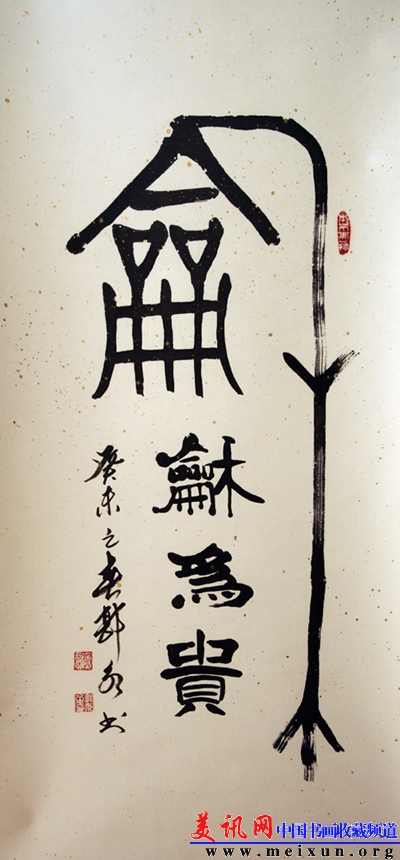 龢
龢為貴
癸未之春 书
美讯网 中国书画收藏频道
www.meixun.org